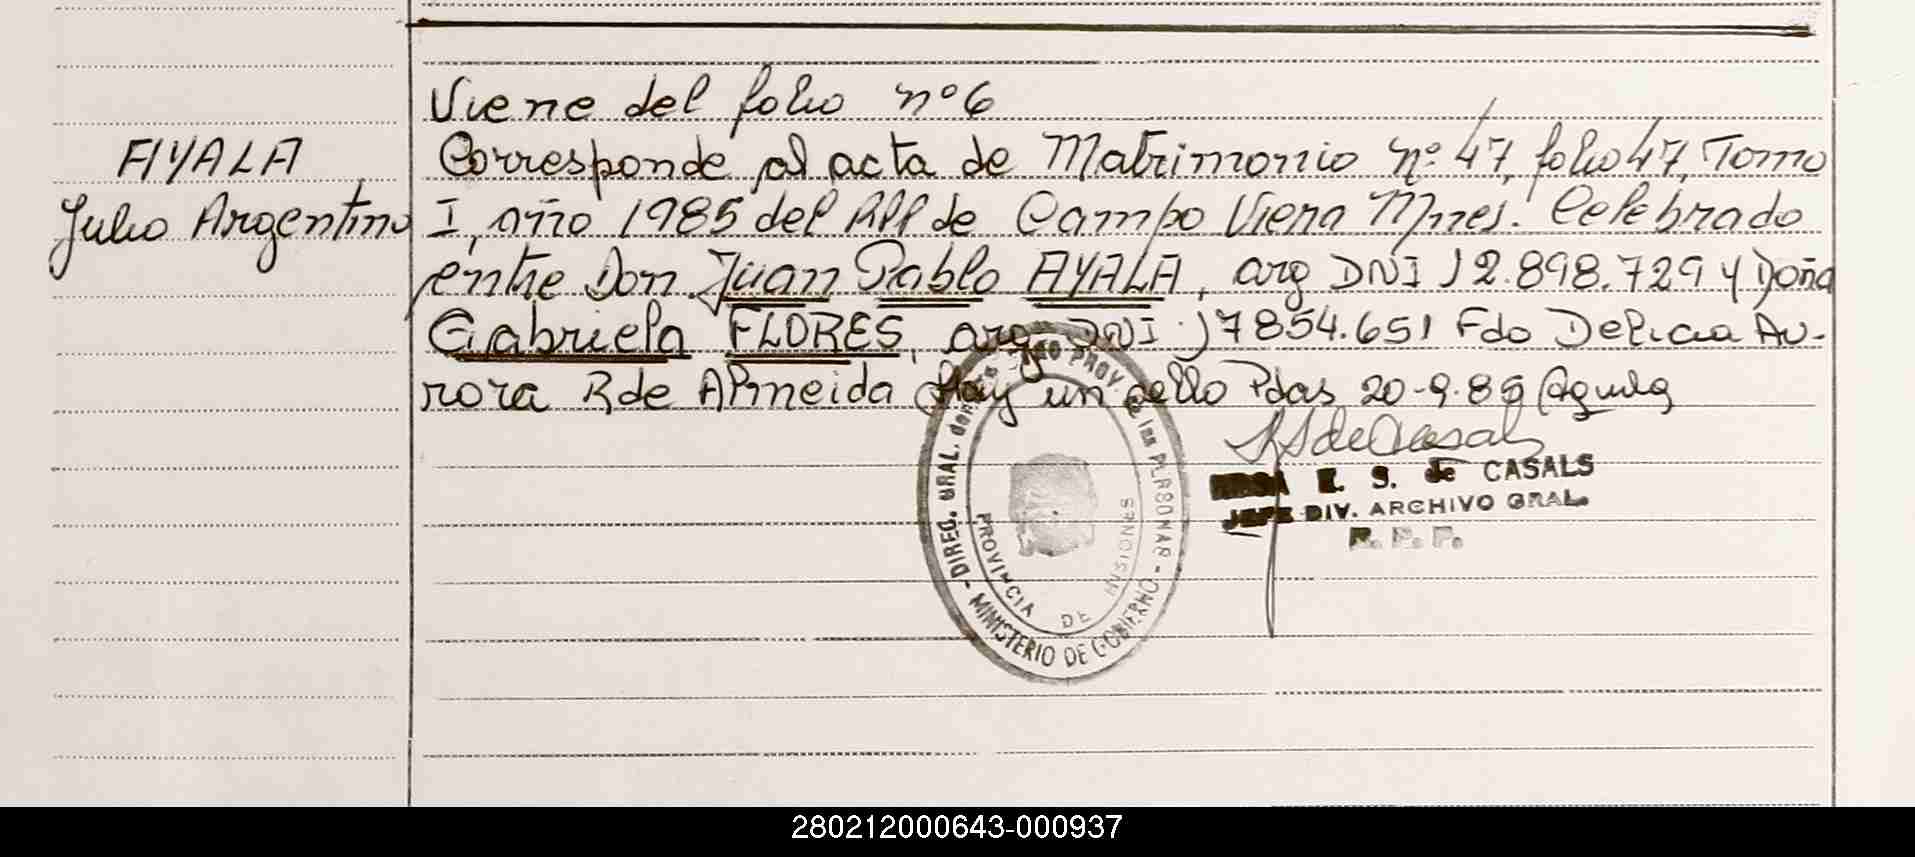 Viene del folio nº 6
AYALA
Julio Argentino
Corresponde al acta de Matrimonio nº 47, folio 47, Tomo
I, año 1985 del RPP de Campo Viera Mnes. Celebrado
entre Don Juan Pablo AYALA, arg DNI 12.898.729 y Doña
Gabriela FLORES, arg DNI 17854.651 Fdo Delicia Au-
rora R de Almeida Hay un sello Pdas 20-9-85
DIREC. GRAL. DEL PROV. de las PERSONAS - MINISTERIO DE GOBIERNO -
PROVINCIA DE MISIONES
E. S. de CASALS
JEFE DIV. ARCHIVO GRAL.
R. P. P.
280212000643-000937